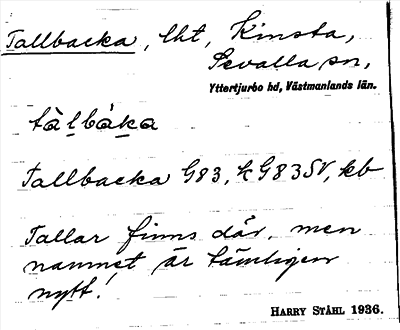 Tallbacka, lht, Kinsta,
Sevalla sn,
Yttertjurbo hd, Västmanlands län.
tàl̠bàka
Tallbacka G83, k G83SV, kb
Tallar finns där, men
namnet är tämligen
nytt!
HARRY STÅHL 1936.